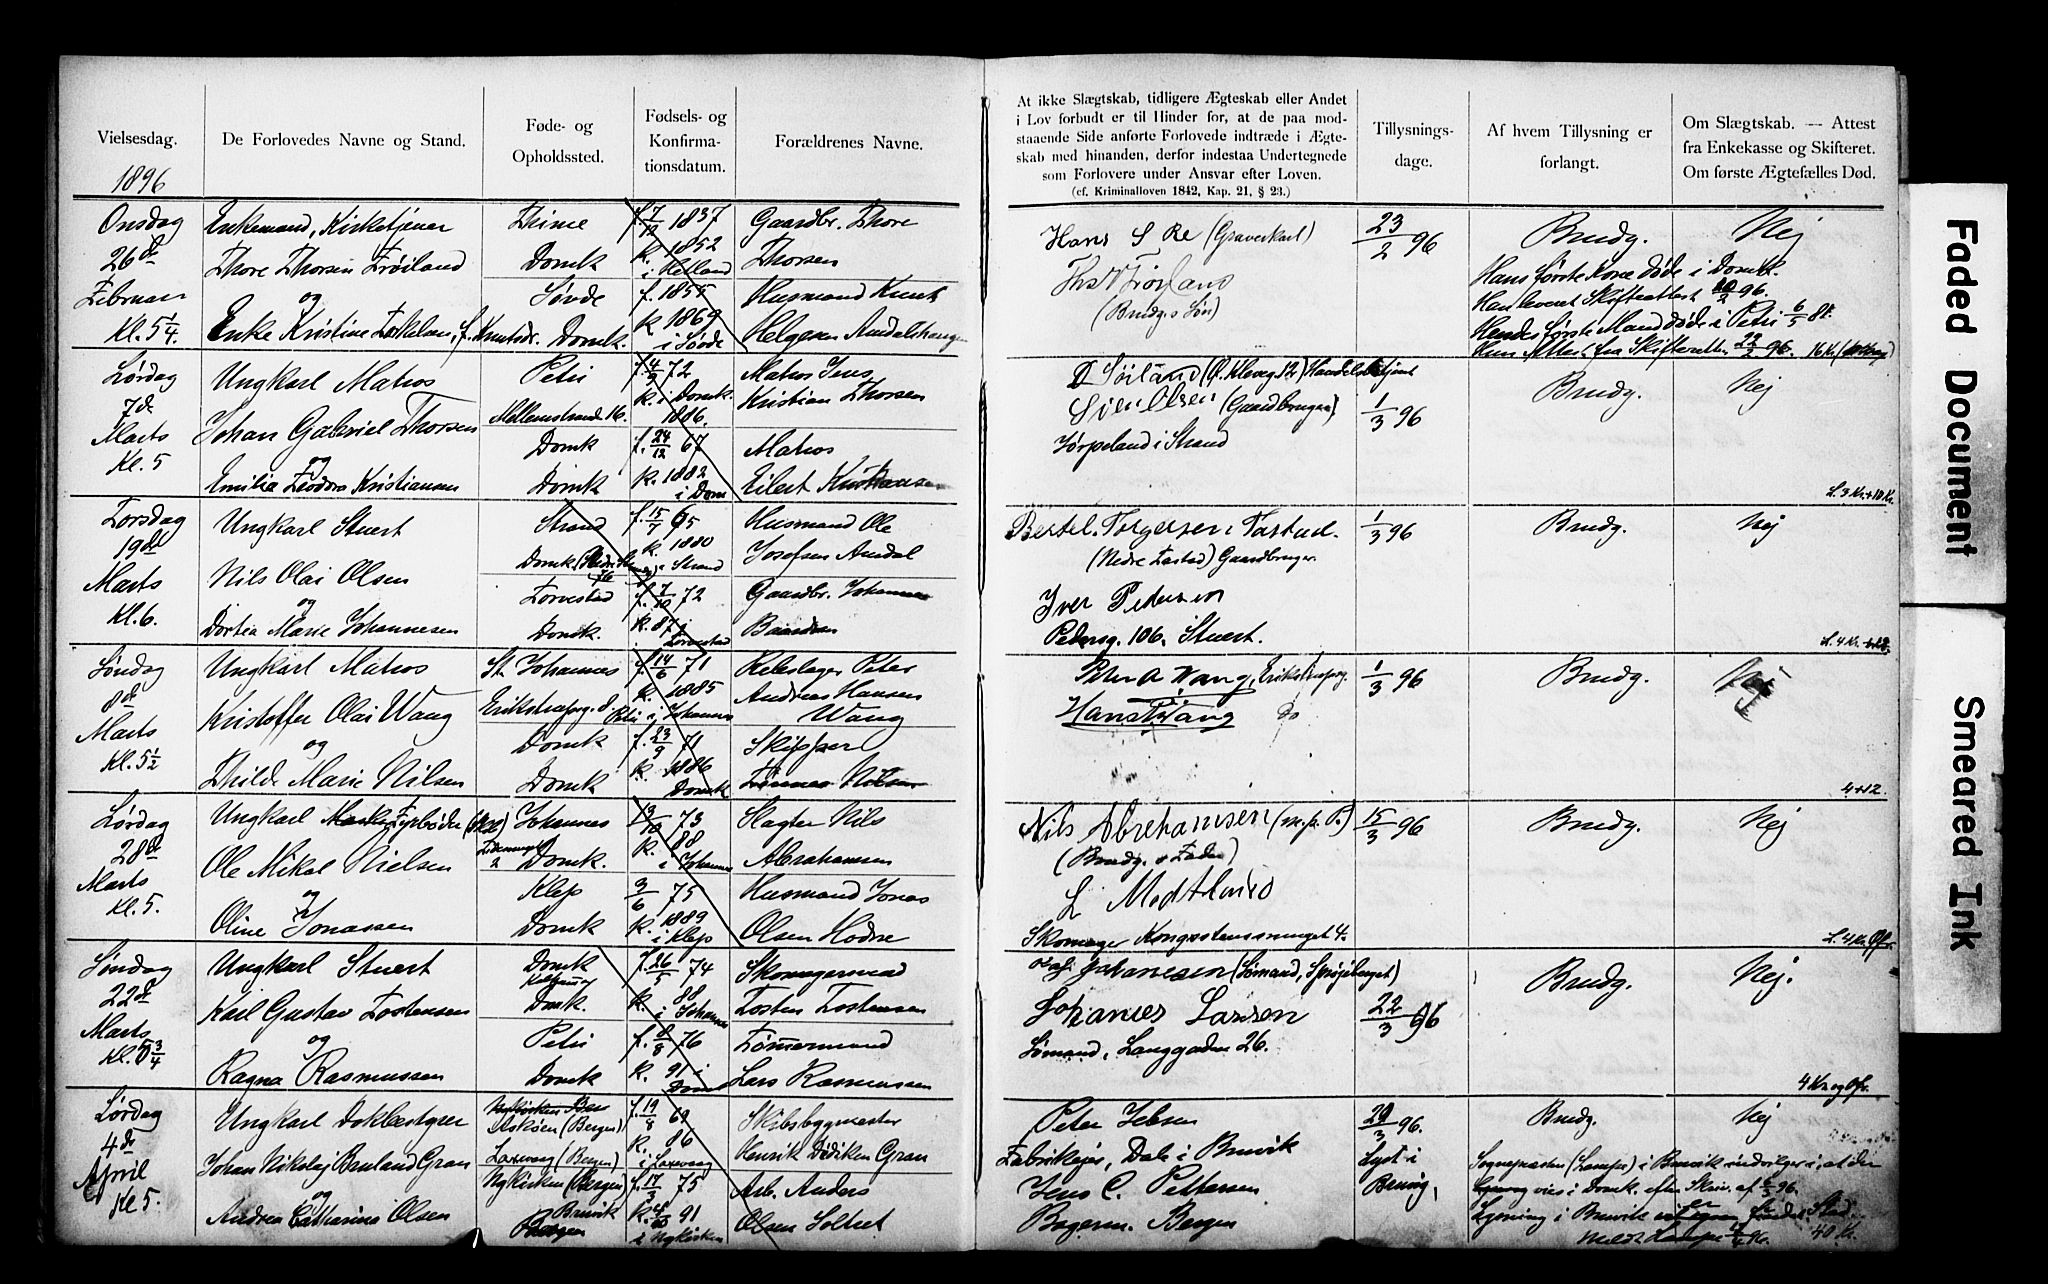 Vielsesdag.
1896
De Forlovedes Navne og Stand.
Føde- og
Opholdssted.
Fødsels- og
Konfirma-
tionsdatum.
Forældrenes Navne.
Onsdag
26de
Februar
Kl. 5 1/4
Enkemand, Kirketjener
Thore Thorsen Frøiland
og
Enke Kristine Torkelsen, f. Knutsdr.
Thime
Domk
Søvde
Domk.
f. 7/12 1837
k. 1852
i Hetland
f. 1855
k. 1869
i Søvde
Gaardbr. Thore
Thorsen
Husmand Knut
Helgesen
Lørdag
7de
Marts
Kl. 5
Ungkarl Matros
Johan Gabriel Thorsen
og
Emilia Teodora Kristiansen
Petri
Mellemstrand 16.
Domk
Domk
72
k. i Domk.
1886.
f. 24/12 67
k. 1882
i Dom
Matros Jens
Kristian Thorsen
Matros
Eilert Kristiansen
Torsdag
19de
Marts
Kl. 6.
Ungkarl Stuert
Nils Olai Olsen
og
Dortea Marie Johannesen
Strand
Domk
76
Torvestad
Domk.
f. 15/7 65
k. 1880
i Strand
f. 7/10 72
k. 87 i
Torvestad
Husmand Ole
Josefsen Amdal
Gaardbr. Johannes
Baardsen
Søndag
8de
Marts
Kl. 5 1/2
Ungkarl Matros
Kristoffer Olai Wang
og
Thilda Marie Nilsen
St. Johannes
Erikstrapeg. 8 Petri
Domk
Domk
f. 14/6 71
k. 1885
i Johannes
f. 23/9 71
k. 1886
Domk
Rebslager Peter
Andreas Hansen
Wang
Skipper
Tønnes Nilsen
Lørdag
28de
Marts
Kl. 5.
Ungkarl Fyrbøder
Ole Mikal Nielsen
og
Oline Jonassen
Johannes
2 Domk.
Klep
Domk
13/10 73
k. 88
i Johannes
3/6 75
k. 1889
i Klep
Slagter Nils
Abrahamsen
Husmand Jonas
Olsen Hodne
Søndag
22de
Marts
Kl. 5 3/4
Ungkarl Stuert
Karl Gustav Torstensen
og
Ragna Rasmussen
Domk
Domk.
Petri
Domk
f. 26/5 74
k. 88
i Johannes
f. 8/8 76
k. 91 i
Domk
Skomagermed
Tosten Tostensen
Tømmermand
Lars Rasmussen
Lørdag
4de
April
Kl 5.
Ungkarl Dokbestyrer
Johan Nikolaj Bruland Gran
og
Andrea Catharina Olsen
Askøen (Bergen)
Laxevaag (Bergen)
Nykirken (Bergen)
Bruvik
Bergen
f. 19/8 69
k. 86
i Laxevaag
f. 17/3 75
91
i Nykirken
Skibsbygmester
Henrik Didiken Gran
Arb. Anders
Olsen Solteit
At ikke Slægtskab, tidligere Ægteskab eller Andet
i Lov forbudt er til Hinder for, at de paa mod-
staaende Side anførte Forlovede indtræde i Ægte-
skab med hinanden, derfor indestaa Undertegnede
som Forlovere under Ansvar efter Loven.
(cf. Kriminalloven 1842, Kap. 21, § 23.)
Tillysnings-
dage.
Af hvem Tillysning er
forlangt.
Om Slægtskab. — Attest
fra Enkekasse og Skifteret.
Om første Ægtefælles Død.
Hans S Re (Graverkarl)
(Brudg.s Søn)
23/2 96
Brudg.
Nej
Hans første Kone døde i Domk.
Han leveret Skifteattest 20/2 96.
Hendes første Mand døde i Petri 6/5 81.
Hun Attest fra Skifteretten 22/2 96. 16 Kr.
Søiland (Ø. Kleveg. 12)
Sven Olsen (Gaardbruger)
Jørpeland i Strand
1/3 96
Brudg.
Nej
L. 3 Kr. + 10 Kr.
Bertel. Torgersen Tastad.
(Nedre Tastad) Gaardbruger.
Iver Pedersen
Pedersg. 106. Stuert.
1/3 96
Brudg.
Nej
L. 4 Kr.
Peter A Wang, Erikstrapeg.
Hans T Wang Do
1/3 96
Brudg.
Nej
4+12.
Nils Abrehamsen (m. p. P.)
(Brudg.s Fader)
Skomager Kongsstensmuget 4.
15/3 96
Brudg.
Nej
L. 4 Kr. Of.
Johanesen (Sømand, Sprøjteberget)
Johannes Larsen
Sømand, Langgaden 26.
22/3 96
Brudg.
Nej.
4 Kr. og Of.
Peter Jebsen
Fabrikejer, Dale i Bruvik
Jens C. Pettersen
Bagerm. Bergen
29/3 96.
Lyst i
Bruvig.
Brudg.
Nej
Sognepresten (Lampe) i Bruvik indvilger i, at de
vies i Domk. efter Skriv. af 96.
Lysning i Bruvik
40 Kr.
Faded Document
Smeared Ink